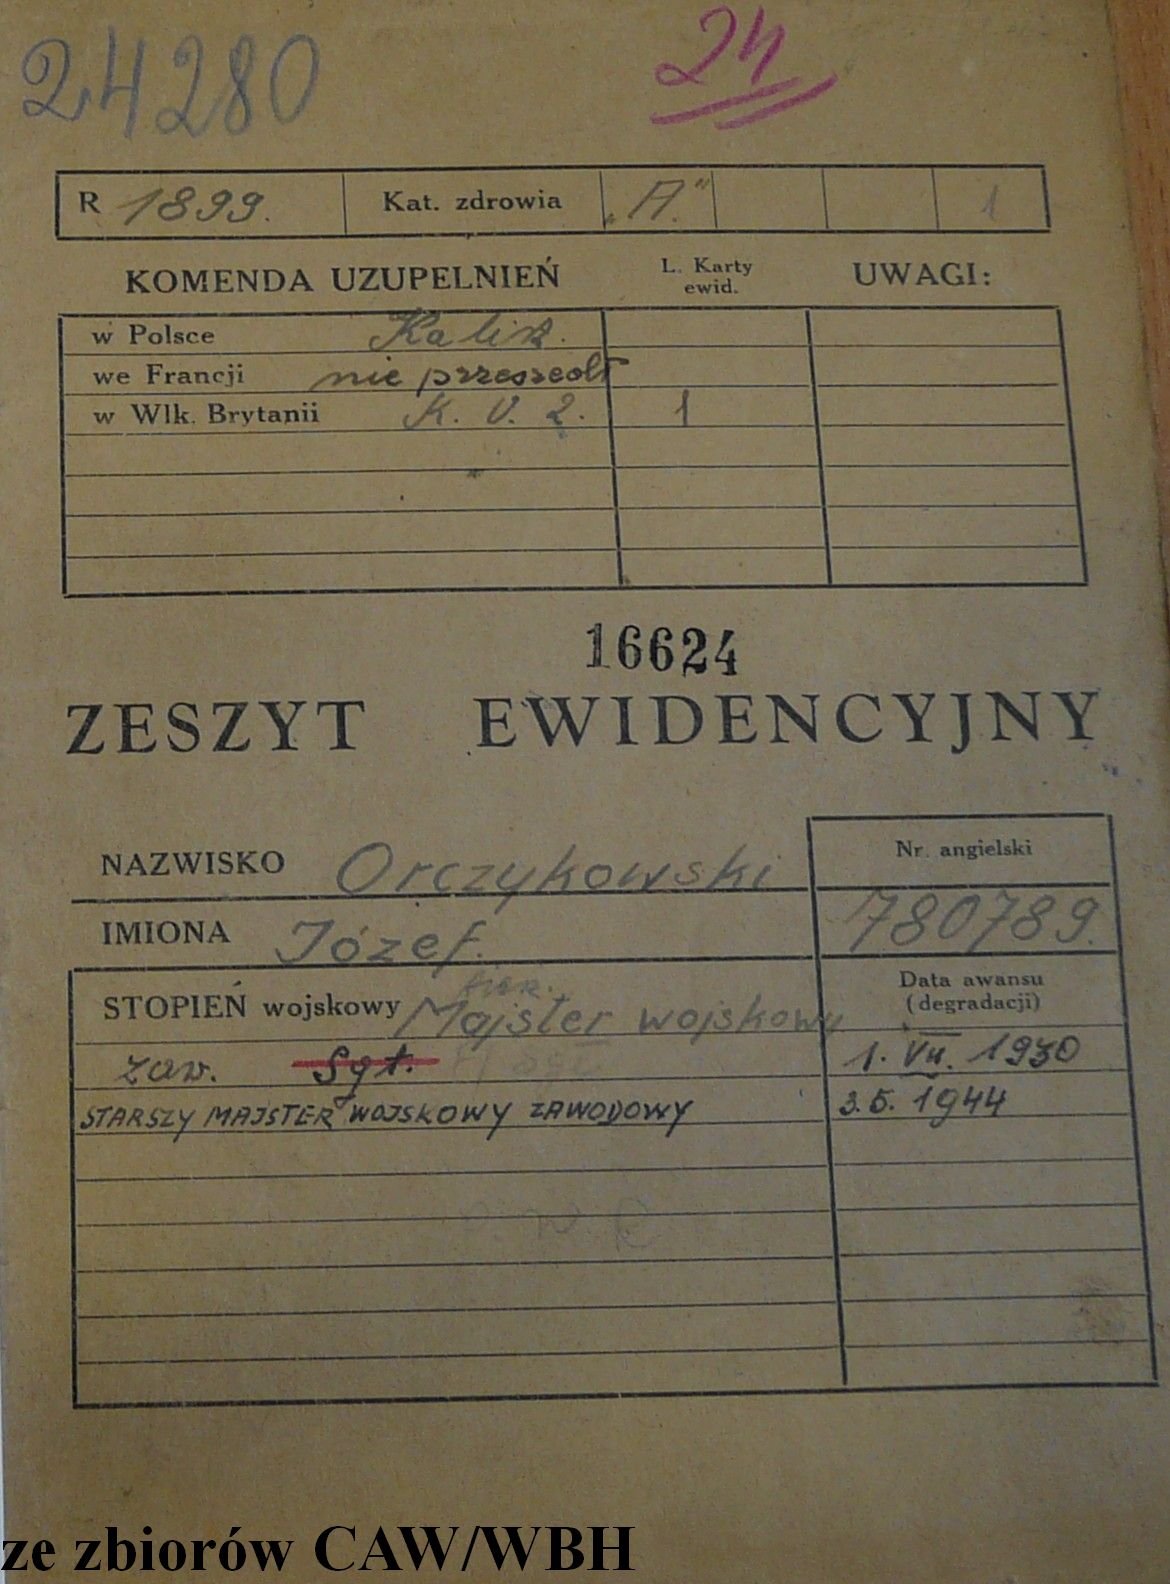 24280 24
R 1899. Kat. zdrowia „A." 1
KOMENDA UZUPELNIEŃ L. Karty ewid. UWAGI:
w Polsce Kalisz.
we Francji nie przeszedł
w Wlk. Brytanii K. U. 2. 1
16624
ZESZYT EWIDENCYJNY
NAZWISKO Orczykowski Nr. angielski
IMIONA Józef. 780789.
STOPIEŃ wojskowy Majster wojskowy Data awansu (degradacji)
zaw. Sgt. 1. VII. 1930
STARSZY MAJSTER WOJSKOWY ZAWODOWY 3.5.1944
ze zbiorów CAW/WBH